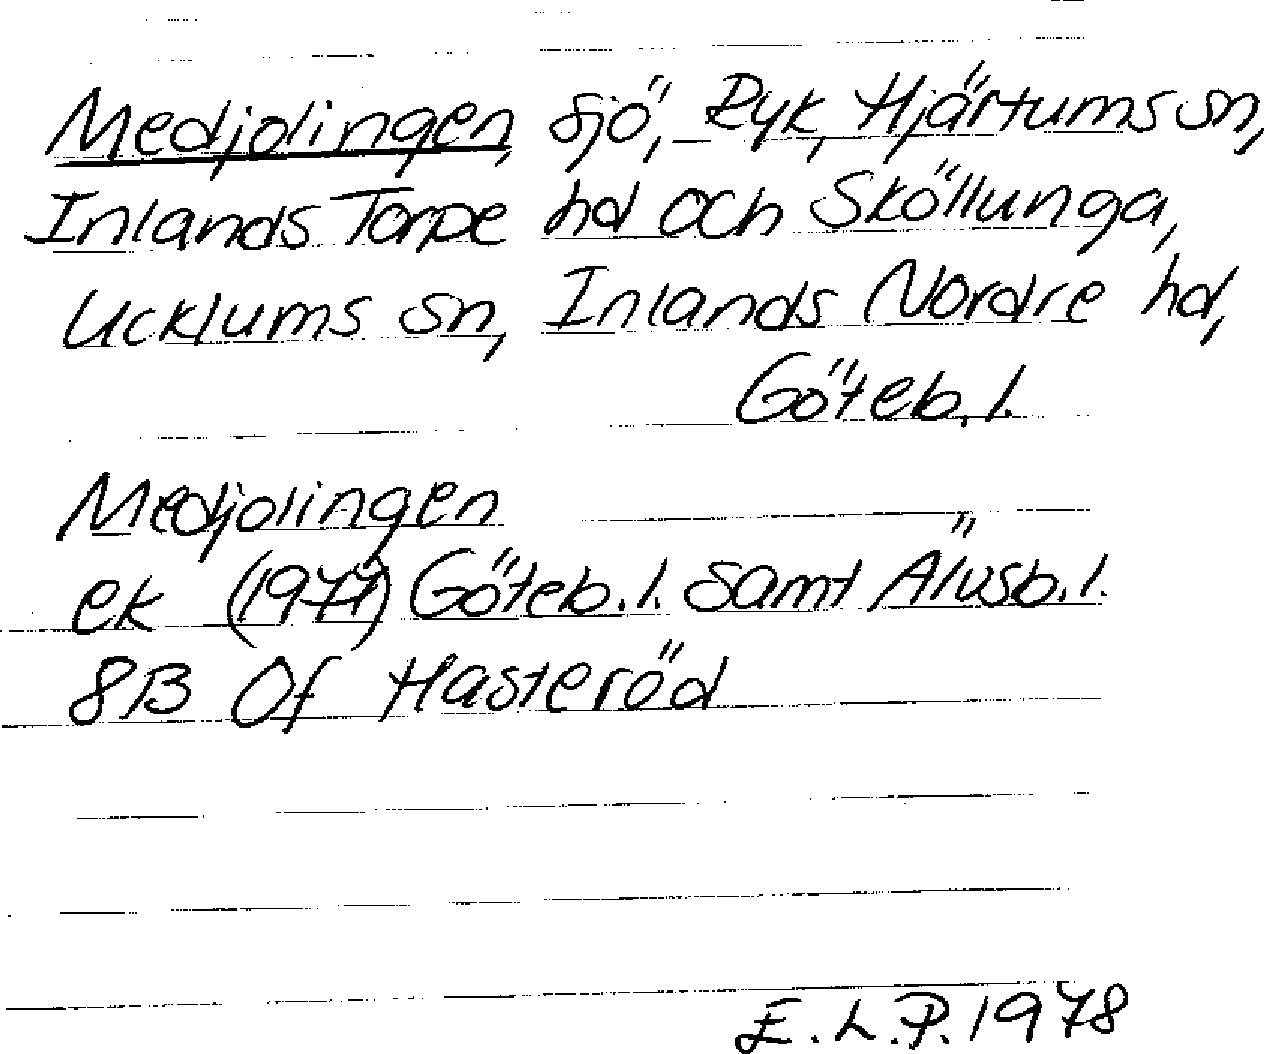 Medjolingen, sjö, Ryk, Hjärtums sn,
Inlands Torpe hd och Sköllunga,
Ucklums sn, Inlands Nordre hd,
Göteb. l.
Medjolingen
ek (1977) Göteb. l. samt Älvsb. l.
8B 0f Hasteröd
E. L. P. 1978